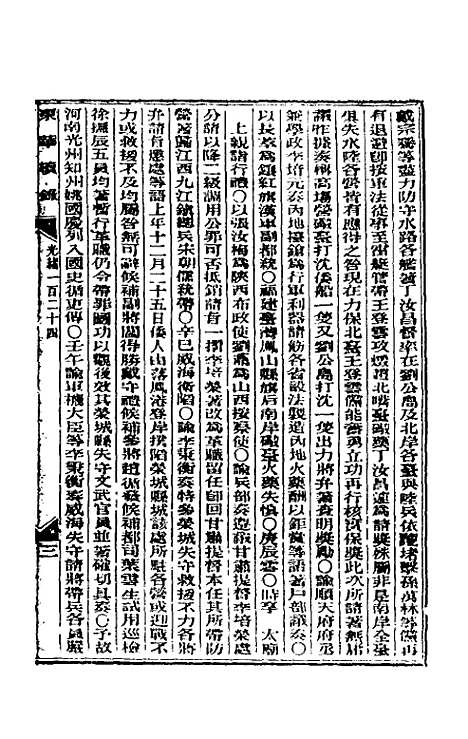 戴宗騫等盡力防守水路各艦著丁汝昌督率在劉公島及北岸各臺與陸兵依護堵擊孫萬林等倘再
有退避卽按軍法從事至雷艇管帶王登雲攻燬趙北嘴臺礮藥丁汝昌遽為請獎殊屬非是南岸全臺
俱失水陸各營皆有應得之咎現在力保北臺王登雲備能奮勇立功再行核實保獎此次所請著無庸
議昨據奏稱高場營礮臺打沈倭船一隻又劉公島打沈一隻出力將弁著查明獎勵〇諭順天府府丞
兼學政李培元奏內地擡鎗為行軍利器請飭各省設法製造內地火藥酬以鉅賞等語著戶部議奏〇
以長萃為鑲紅旗漢軍副都統〇福建臺灣鳳山縣旗后南岸礮臺火藥失愼〇庚辰雲〇時享　太廟
上親詣行禮〇以張汝梅為陝西布政使劉鼒為山西按察使〇諭兵部奏遵議甘肅提督李培榮處
分請以降二級調用公罪可否抵銷請旨一摺李培榮著改為革職留任卽回甘肅提督本任其所帶防
營著歸江西九江鎮總兵宋朝儒統帶〇辛巳威海衛陷〇諭李秉衡奏特參榮城失守救援不力各將
弁請旨懲處等語上年十二月二十五日倭人由落鳳港登岸撲陷榮城縣城該處所駐各營或迎戰不
力或救援不及均屬咎無可辭候補副將閻得勝戴守禮候補參將趙得發候補都司葉雲生試用巡檢
徐撫辰五員均著暫行革職仍令帶罪圖功以觀後效其榮城縣失守文武官員並著確切具奏〇予故
河南光州知州姚國慶列入國史循吏傳〇壬午諭軍機大臣等李秉衡奏威海失守請將帶兵各員嚴
東華續錄
光緒一百二十四
三